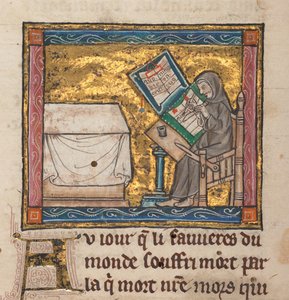 Av iour q̄ li sauuieres du
monde souffri mort par
la q̄ mort nr̄e mors